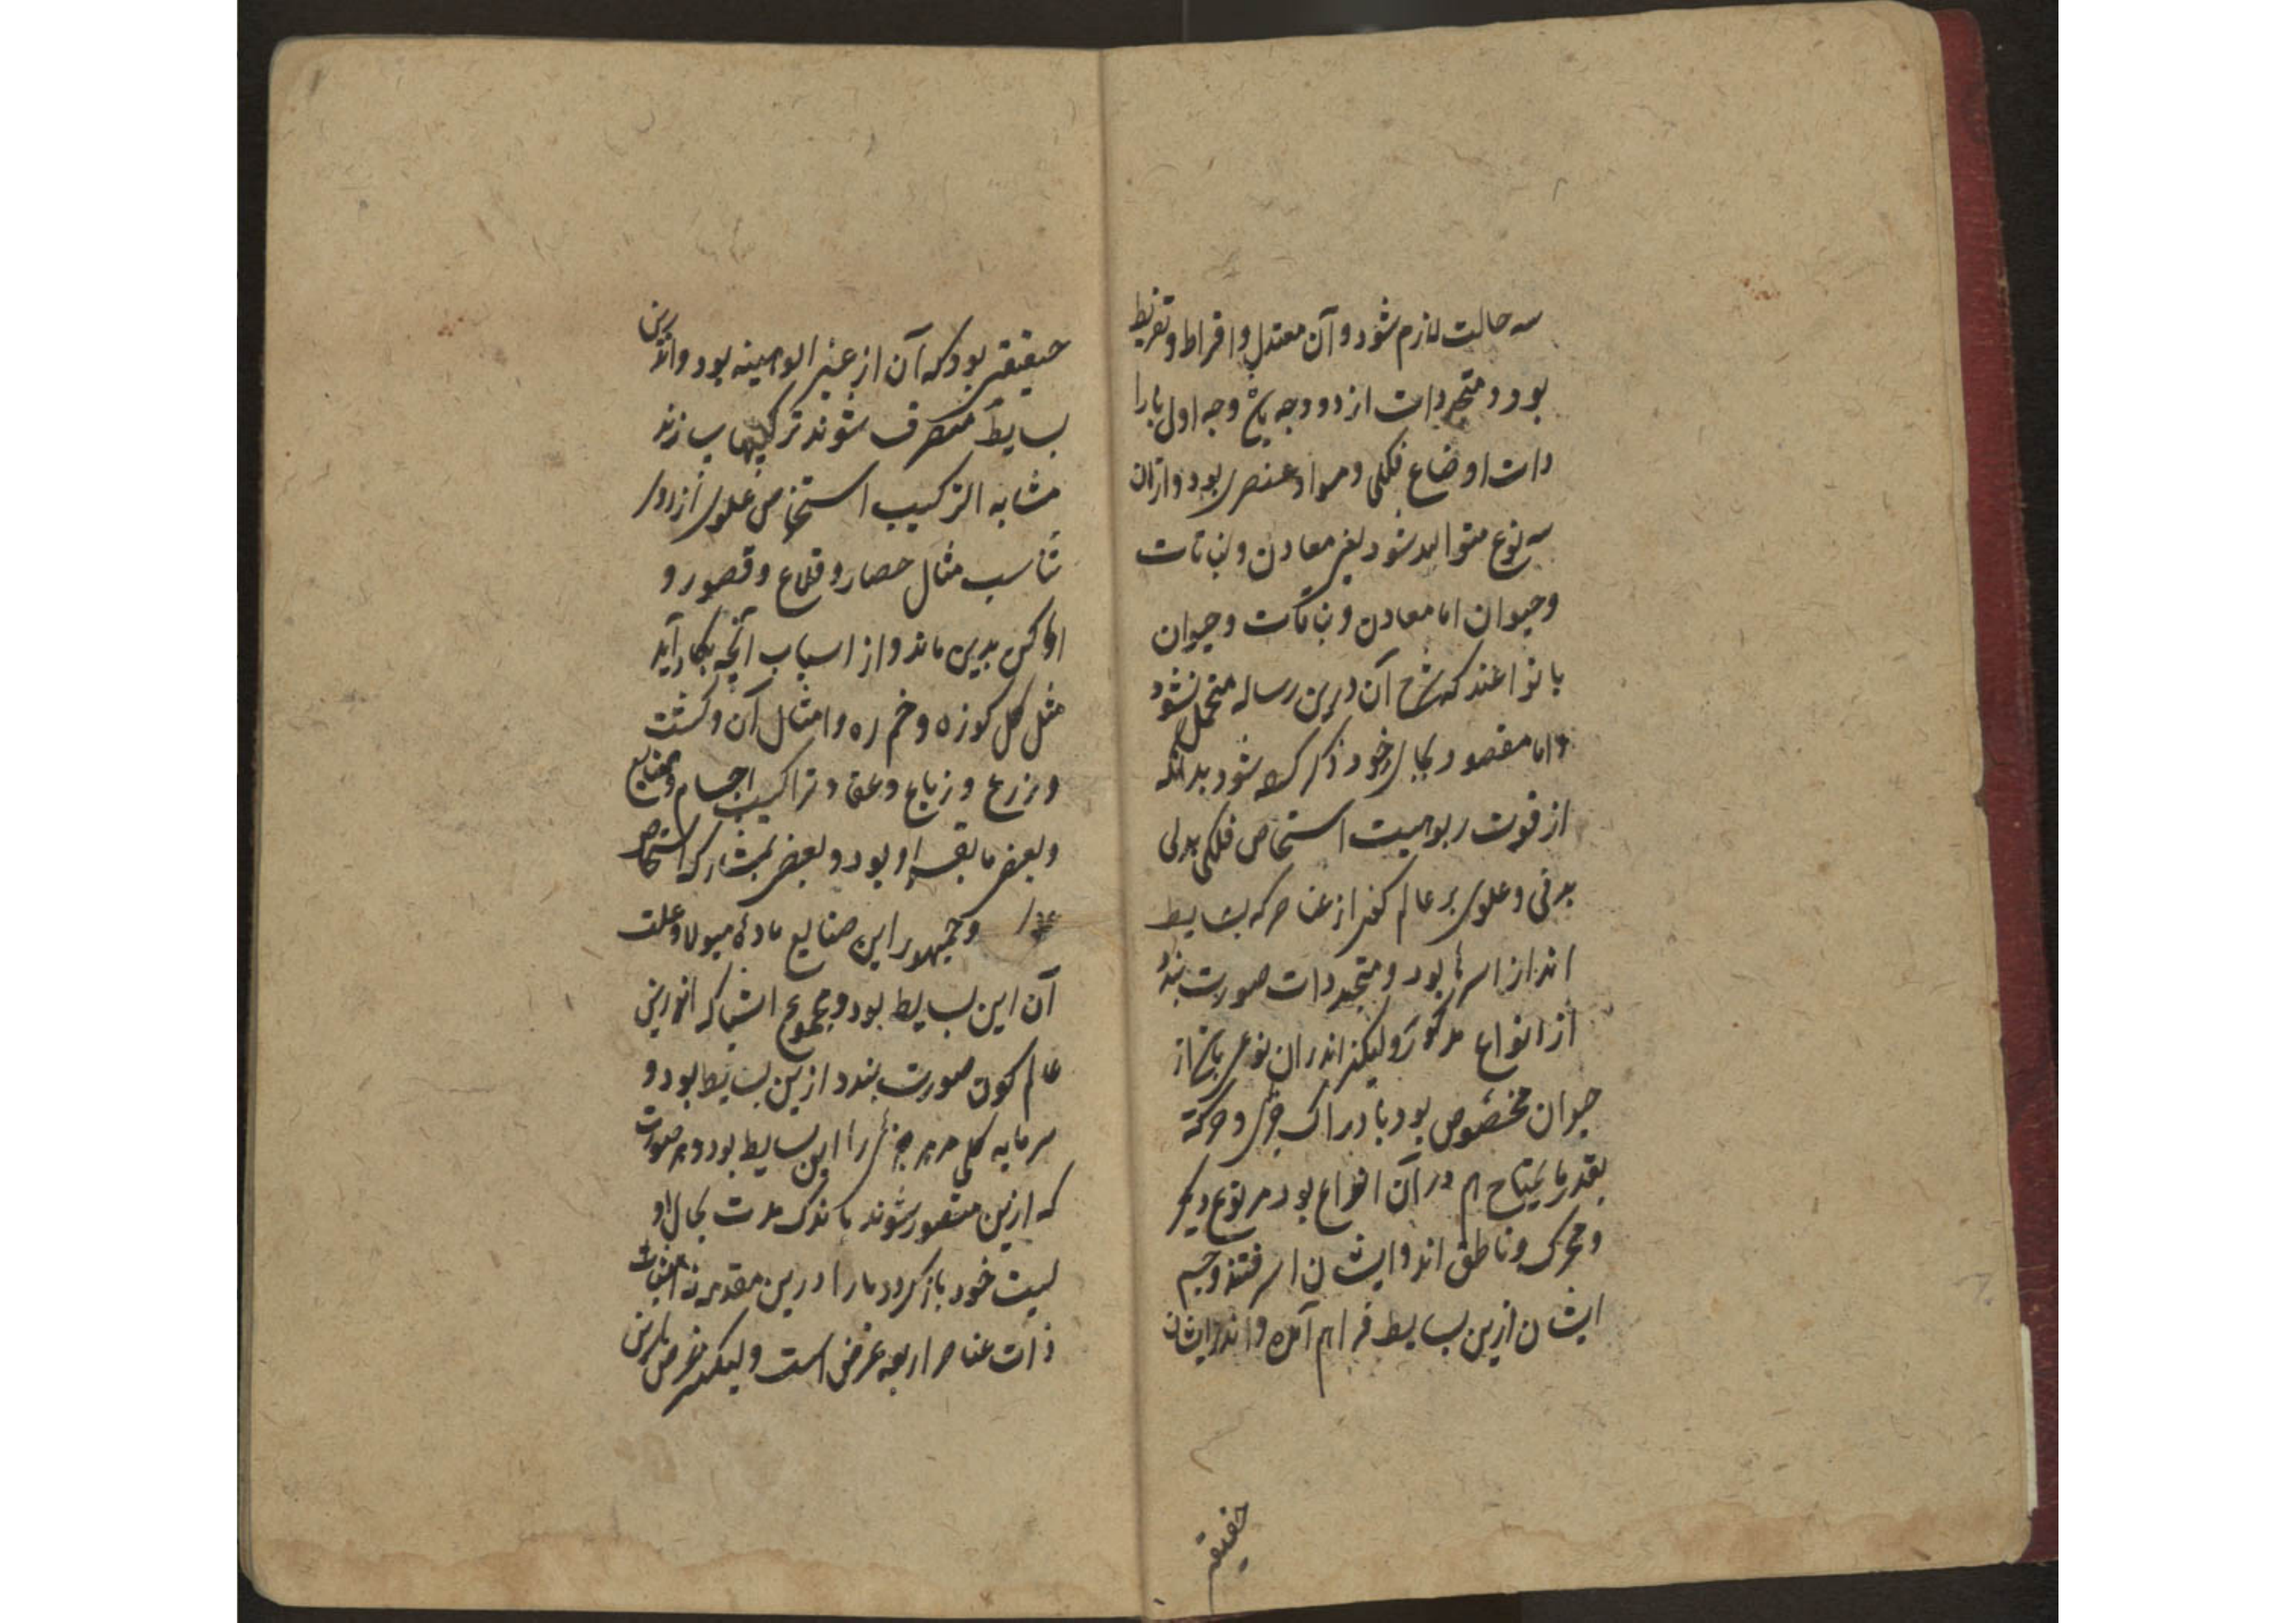 سه حالت لازم شود و آن معتدل و افراط و تفریط
بود و متجردات از دو وجه وجه اول با را
دات اوضاع فلکی و مواد عنصری بود و ازان
سه نوع متوالد شود یعنی معادن و نباتات
و حیوان اما معادن و نباتات و حیوان
با نواعند که شرح آن درین رساله متحمل نشود
و اما مقصود بجای خود ذکر کرده شود بدانکه
از قوت ربوبیت استخاص فلکی بدلی
بدنی و علوی بر عالم کند از عناصر که بسایط
اند از اسرها بود و متجددات صورت بندد
از انواع مذکور ولیکن اندران نوعی از
حیوان مخصوص بود با دراک و حرکة
بقدر ما یحتاج هم در آن انواع بود هر نوع دیگر
و محرک و ناطق اند و ایشان اسرفتند و جسم
ایشان ازین بسایط فراهم آمده و اندر ایشان
حقیقتی
حقیقتی بود که آن از عنبر الوهینه بود و اندرین
بسایط متصرف شوند ترکیبها سازند
مشابه الترکیب استخاص علوی از روی
تناسب مثال حصار و قلاع و قصور و
اماکن بدین ماند و از اسباب آنچه بکار آید
مثل کل کوزه و خم ره و امثال آن و کشت
و زرع و زباع و عقا و تراکیب اجسام و صنایع
و بعضی ما بقسر او بود و بعضی بمشارکه استخاص
و جمهور این صنایع مادهٔ هیولا و علت
آن این بسایط بود و مجموع اشیا که اندرین
عالم کون صورت بندد ازین بسایط بود و
سرمایه کلی هر جزئی را این بسایط بود و هر صورت
که ازین متصور شوند باندک مدت بحال او
لیت خود باز کردد ما را درین مقدمه نه اثبات
ذات عناصر اربعه غرض است ولیکن غرض بدین